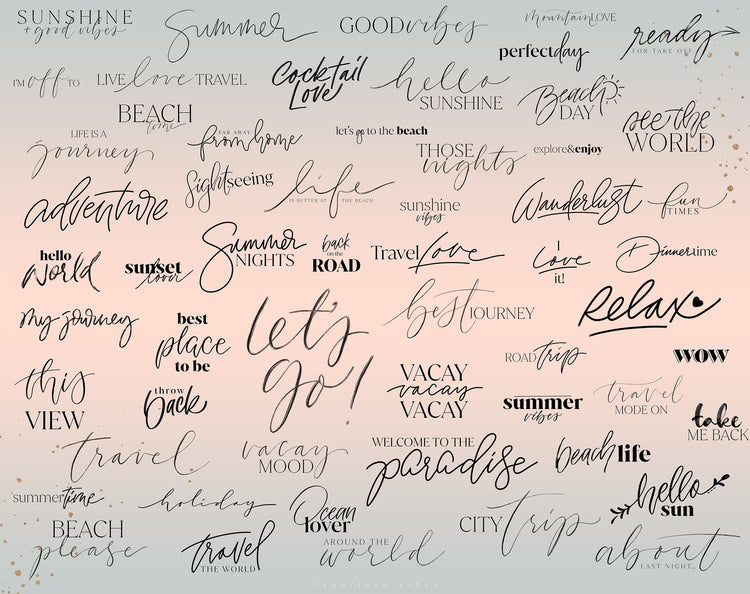 SUNSHINE
+ good vibes
Summer
GOOD vibes
mountain LOVE
ready
FOR TAKE OFF
perfect day
I'M off TO
LIVE love TRAVEL
Cocktail
Love
hello
SUNSHINE
Beach
DAY
see the
WORLD
BEACH
time
LIFE IS A
journey
FAR AWAY
from home
let's go to the beach
THOSE
nights
explore&enjoy
adventure
Sightseeing
life
IS BETTER AT THE BEACH
sunshine
vibes
Wanderlust
fun
TIMES
hello
world
sunset
lover
Summer
NIGHTS
back
on the
ROAD
Travel Love
I
Love
it!
Dinnertime
my journey
best
place
to be
let's
go!
best JOURNEY
Relax
ROAD trip
WOW
this
VIEW
throw
back
VACAY
vacay
VACAY
summer
vibes
travel
MODE ON
take
ME BACK
travel
vacay
MOOD
WELCOME TO THE
paradise
beach life
summer time
holiday
Ocean
lover
hello
sun
BEACH
please
travel
THE WORLD
AROUND THE
world
CITY trip
about
LAST NIGHT...
Paperlove Vibes